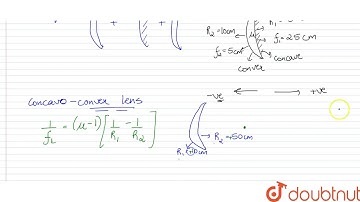 + +
R₂=10cm
μ
f₂=5cm
f₂=25cm
convex
concave
-ve
+ve
concavo-convex lens
1/f_L = (μ-1)[1/R₁ - 1/R₂]
R₂=+50cm
doubtnut